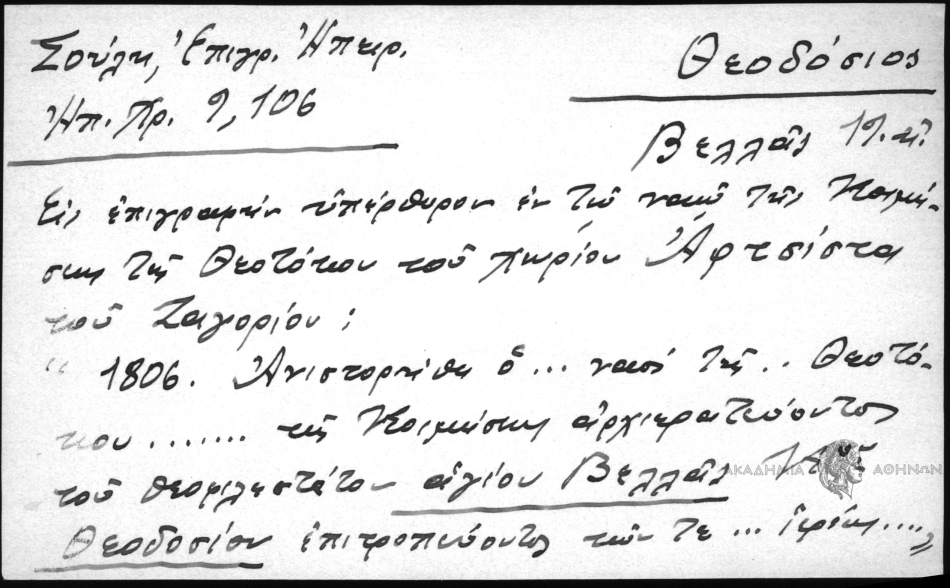 Σούλη, Ἐπιγρ. Ἠπειρ.
Ἠπ. Χρ. 9, 106
Θεοδόσιος
Βελλᾶς 19. αἰ.
Εἰς ἐπιγραφὴν ὑπέρθυρον ἐν τῷ ναῷ τῆς Κοιμή-
σεως τῆς Θεοτόκου τοῦ χωρίου Ἀρτσίστα
τοῦ Ζαγορίου:
"1806. Ἀνιστορήθη ὁ ... ναὸς τῆς .. Θεοτό-
κου ....... τῆς Κοιμήσεως ἀρχιερατεύοντος
τοῦ θεοφιλεστάτου ἁγίου Βελλᾶς
Θεοδοσίου ἐπιτροπεύοντος τῶν τε ... ἱερέως ...."
ΑΚΑΔΗΜΙΑ ΑΘΗΝΩΝ